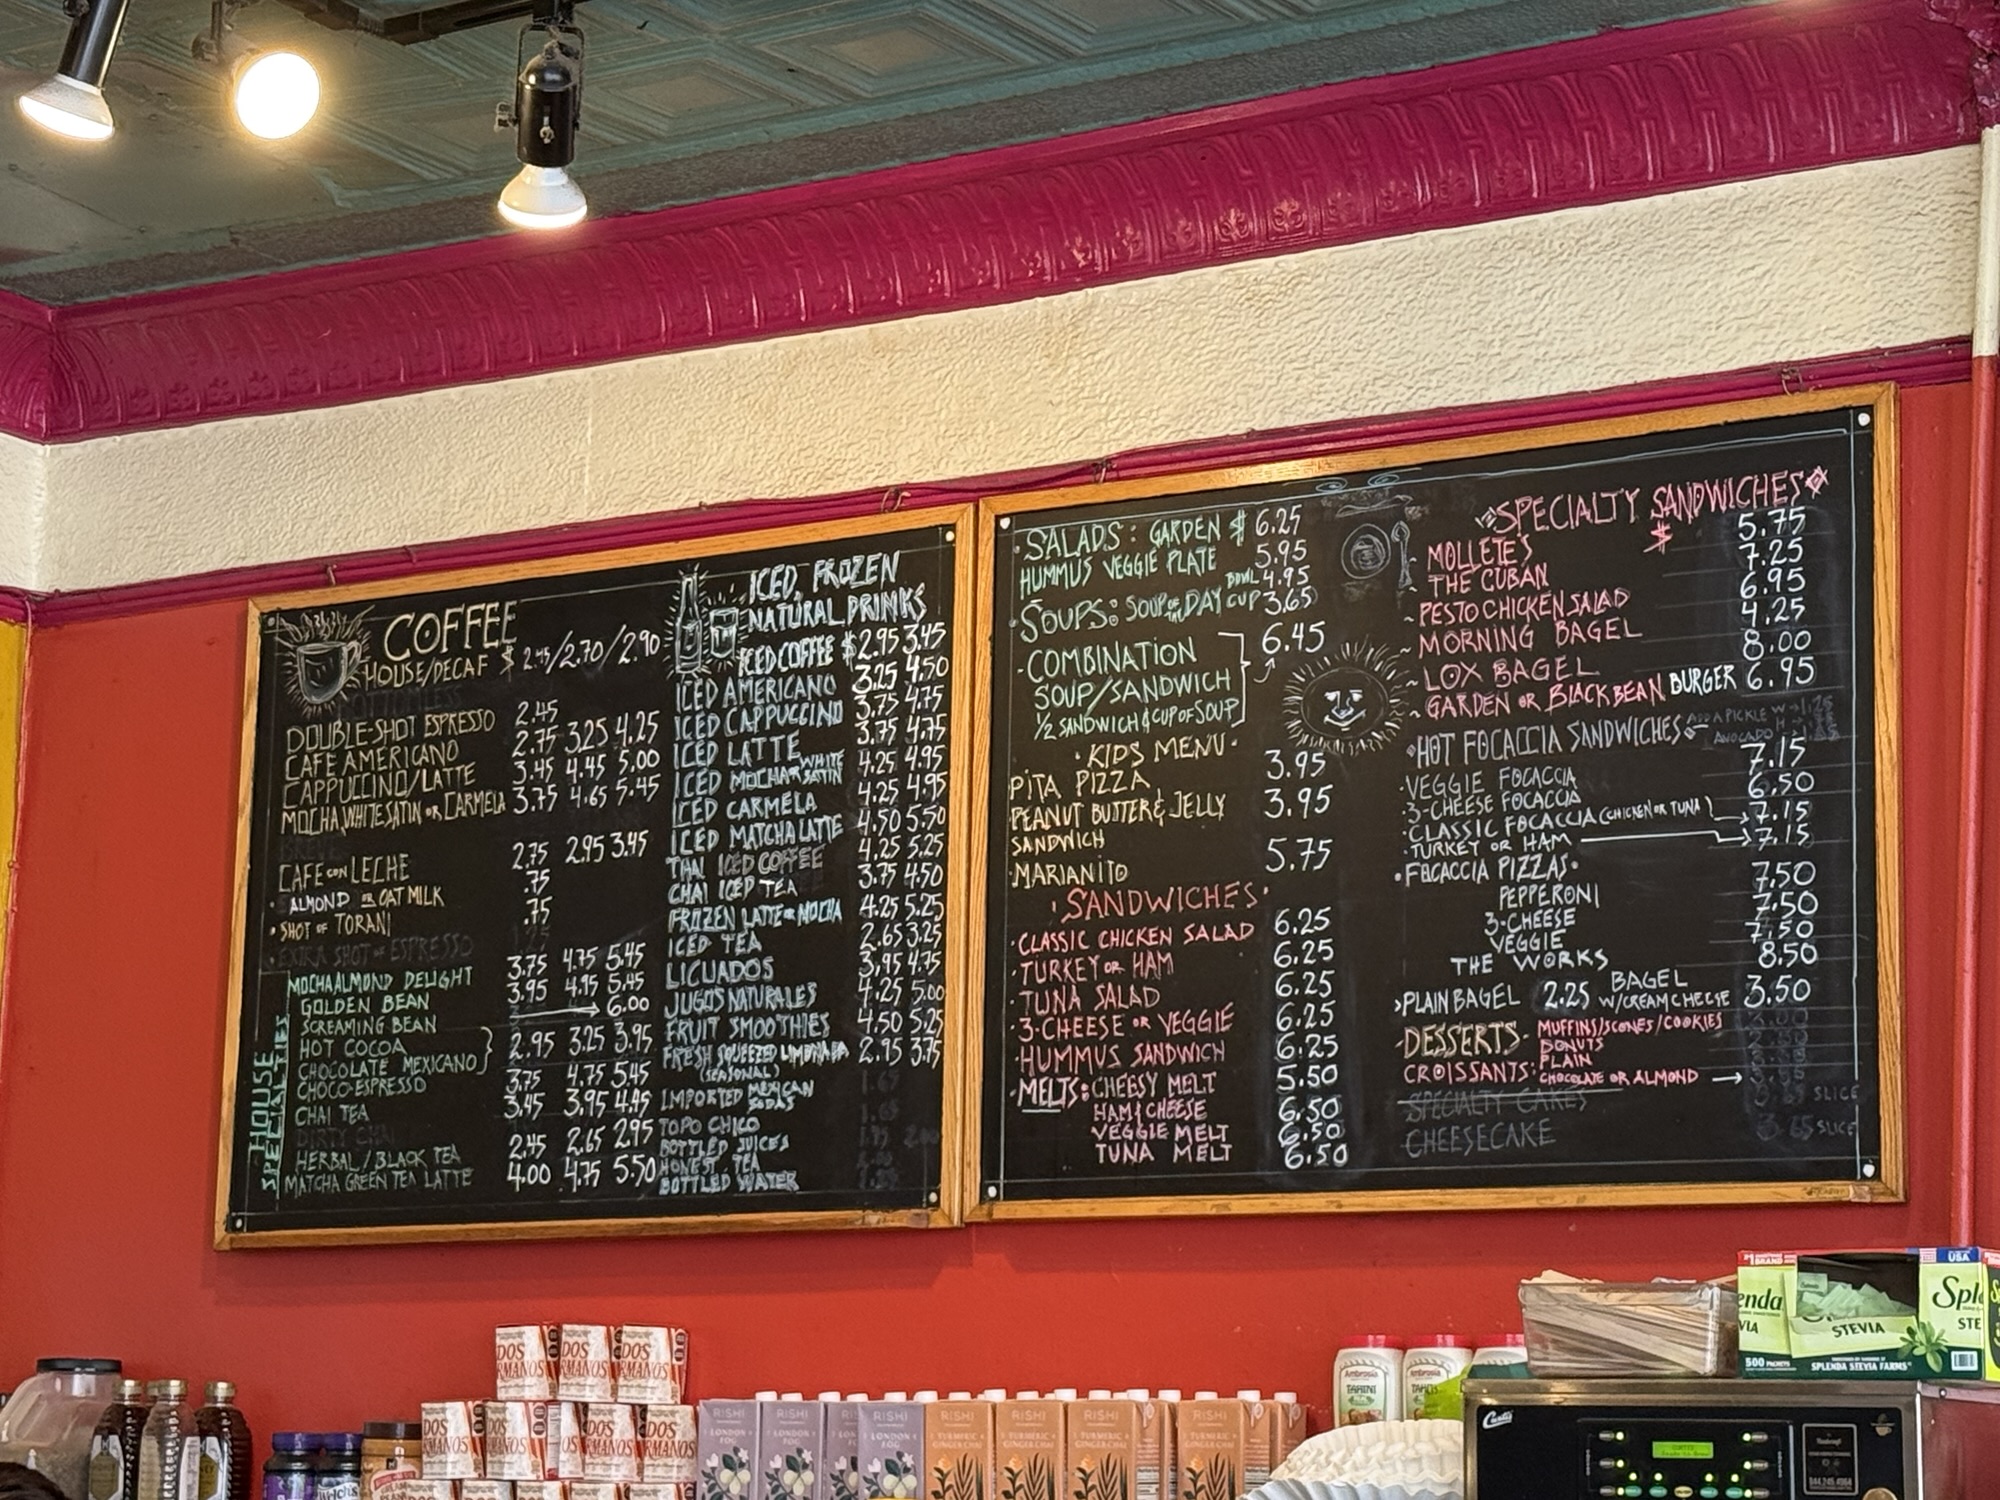 COFFEE
HOUSE/DECAF $ 2.45/2.70/2.90
BOTTOMLESS
DOUBLE-SHOT ESPRESSO 2.45
CAFE AMERICANO 2.75 3.25 4.25
CAPPUCCINO/LATTE 3.45 4.45 5.00
MOCHA, WHITE SATIN OR CARMELA 3.75 4.65 5.45
BREVE
CAFE CON LECHE 2.75 2.95 3.45
• ALMOND OR OAT MILK .75
• SHOT OF TORANI .75
• EXTRA SHOT OF ESPRESSO 1.25
HOUSE SPECIALTIES
MOCHA ALMOND DELIGHT 3.75 4.75 5.45
GOLDEN BEAN 3.95 4.15 5.45
SCREAMING BEAN 6.00
HOT COCOA
CHOCOLATE MEXICANO } 2.95 3.25 3.95
CHOCO-ESPRESSO 3.75 4.75 5.45
CHAI TEA 3.45 3.95 4.45
DIRTY CHAI
HERBAL/BLACK TEA 2.45 2.65 2.95
MATCHA GREEN TEA LATTE 4.00 4.75 5.50
ICED, FROZEN
NATURAL DRINKS
ICED COFFEE $ 2.95 3.45
ICED AMERICANO 3.25 4.50
ICED CAPPUCCINO 3.75 4.75
ICED LATTE 3.75 4.75
ICED MOCHA OR WHITE SATIN 4.25 4.95
ICED CARMELA 4.25 4.95
ICED MATCHA LATTE 4.50 5.50
THAI ICED COFFEE 4.25 5.25
CHAI ICED TEA 3.75 4.50
FROZEN LATTE OR MOCHA 4.25 5.25
ICED TEA 2.65 3.25
LICUADOS 3.95 4.75
JUGOS NATURALES 4.25 5.00
FRUIT SMOOTHIES 4.50 5.25
FRESH SQUEEZED LIMONADA 2.95 3.75
(SEASONAL)
IMPORTED MEXICAN SODAS
TOPO CHICO
BOTTLED JUICES
HONEST TEA
BOTTLED WATER
SALADS: GARDEN $ 6.25
HUMMUS VEGGIE PLATE 5.95
BOWL 4.95
SOUPS: SOUP OF THE DAY CUP 3.65
- COMBINATION 6.45
SOUP/SANDWICH
1/2 SANDWICH & CUP OF SOUP
• KIDS MENU •
PITA PIZZA 3.95
PEANUT BUTTER & JELLY 3.95
SANDWICH
MARIANITO 5.75
SANDWICHES
• CLASSIC CHICKEN SALAD 6.25
• TURKEY OR HAM 6.25
• TUNA SALAD 6.25
• 3-CHEESE OR VEGGIE 6.25
• HUMMUS SANDWICH 6.25
• MELTS: CHEESY MELT 5.50
HAM & CHEESE 6.50
VEGGIE MELT 6.50
TUNA MELT 6.50
SPECIALTY SANDWICHES
~ MOLLETES $ 5.75
~ THE CUBAN 7.25
~ PESTO CHICKEN SALAD 6.95
~ MORNING BAGEL 4.25
~ LOX BAGEL 8.00
~ GARDEN OR BLACKBEAN BURGER 6.95
HOT FOCACCIA SANDWICHES
ADD A PICKLE
AVOCADO
• VEGGIE FOCACCIA 7.15
• 3-CHEESE FOCACCIA 6.50
• CLASSIC FOCACCIA (CHICKEN OR TUNA) 7.15
• TURKEY OR HAM 7.15
• FOCACCIA PIZZAS •
PEPPERONI 7.50
3-CHEESE 7.50
VEGGIE 7.50
THE WORKS 8.50
PLAIN BAGEL 2.25 BAGEL W/CREAM CHEESE 3.50
DESSERTS: MUFFINS/SCONES/COOKIES
DONUTS
CROISSANTS: PLAIN
CHOCOLATE OR ALMOND →
SPECIALTY CAKES SLICE
CHEESECAKE 3.65 SLICE
#1 BRAND
enda
VIA
500 PACKETS
STEVIA
SPLENDA STEVIA FARMS
USA
Sple
STE
DOS
RMANOS
DOS
RMANOS
DOS
RMANOS
DOS
RMANOS
DOS
RMANOS
DOS
RMANOS
RISHI
LONDON FOG
RISHI
LONDON FOG
RISHI
LONDON FOG
RISHI
TURMERIC GINGER CHAI
RISHI
TURMERIC GINGER CHAI
RISHI
TURMERIC GINGER CHAI
RISHI
TURMERIC GINGER CHAI
Ambrosia
TAHINI
Ambrosia
Welch's
Curtis